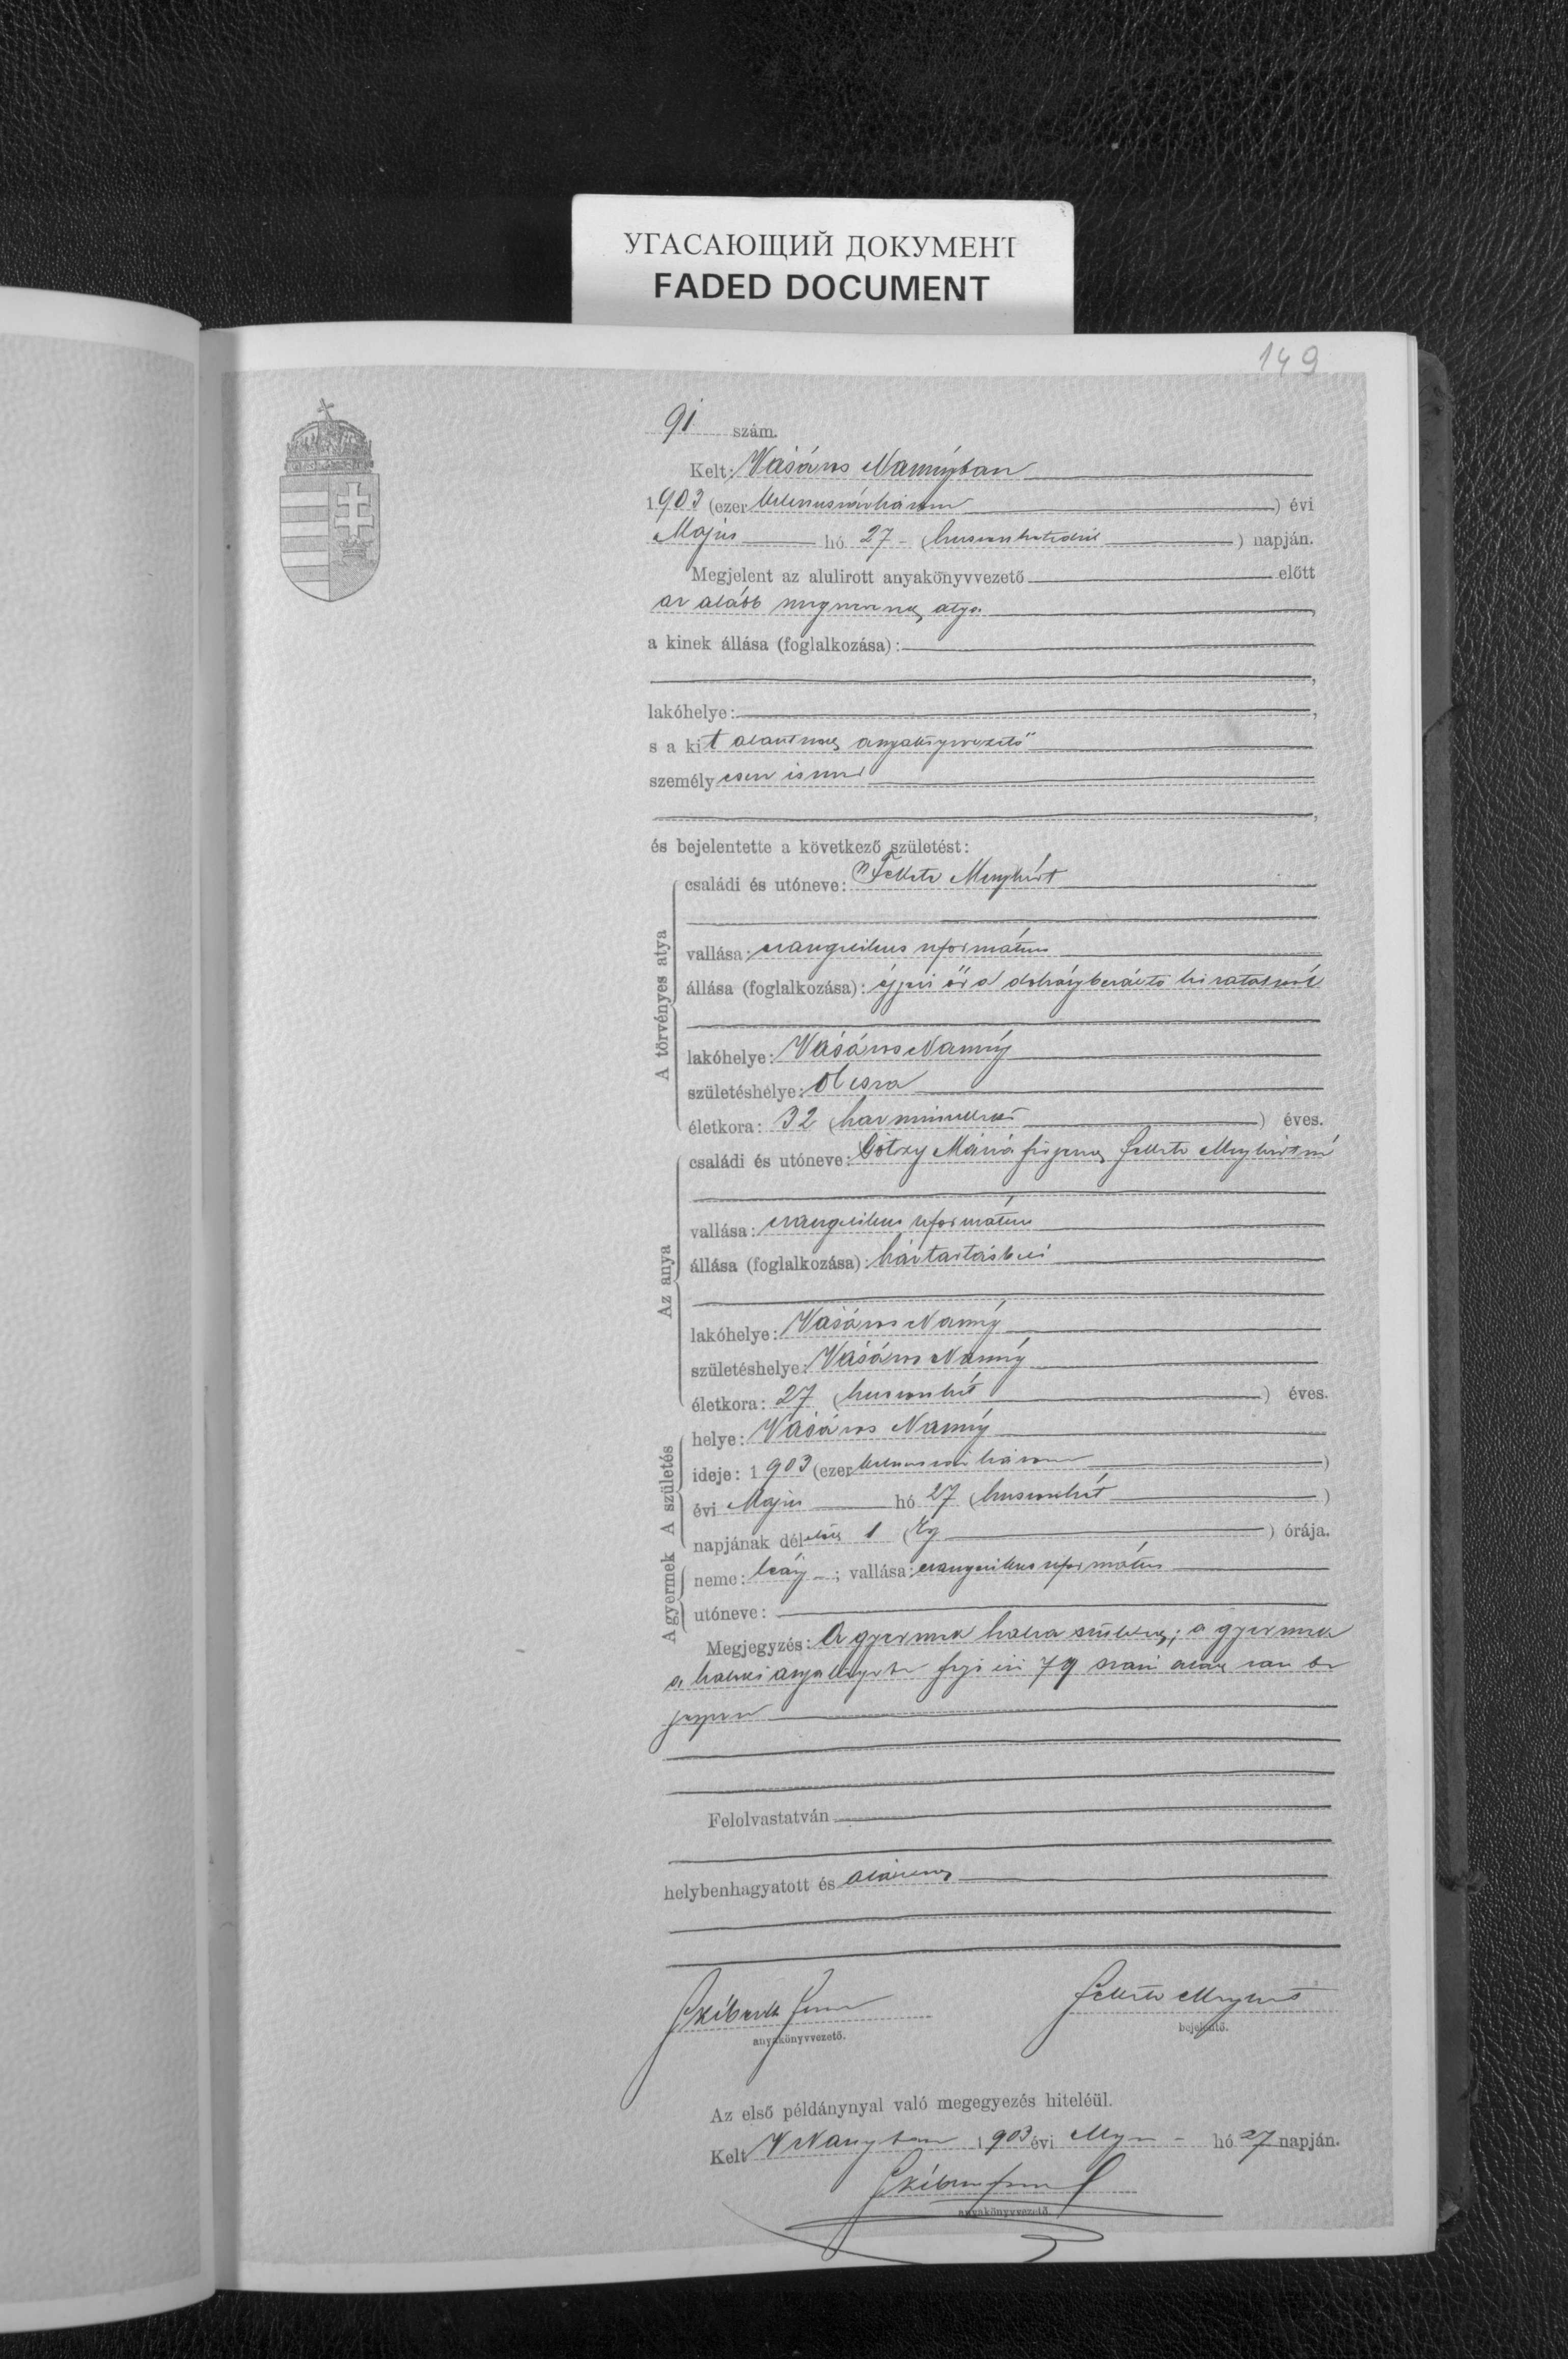 УГАСАЮЩИЙ ДОКУМЕНТ
FADED DOCUMENT
149
91 szám.
Kelt: Vásáros Naményban
1903 (ezer kilenczszázhárom) évi
Május hó 27 - (huszonhetedik) napján.
Megjelent az alulirott anyakönyvvezető előtt
az alább megnevezett atya
a kinek állása (foglalkozása):
lakóhelye:
s a kit alantirott anyakönyvvezető
személyesen ismer
és bejelentette a következő születést:
A törvényes atya
családi és utóneve: Fekete Menyhért
vallása: evangelikus református
állása (foglalkozása): éjjeli őr a dohánybeváltó hivatalnál
lakóhelye: Vásáros Namény
születéshelye: Olcsva
életkora: 32 (harminczkettő) éves.
Az anya
családi és utóneve: Mária férjezett Fekete Menyhértné
vallása: evangelikus református
állása (foglalkozása): háztartásbeli
lakóhelye: Vásáros Namény
születéshelye: Vásáros Namény
életkora: 27 (huszonhét) éves.
A születés
helye: Vásáros Namény
ideje: 1903 (ezer kilenczszázhárom)
évi Május hó 27 (huszonhét)
napjának délelőtt 1 (Egy) órája.
A gyermek
neme: leány -; vallása: evangelikus református
utóneve:
Megjegyzés: A gyermek halva született; a gyermek
a halotti anyakönyvbe folyó évi 79 szám alatt van be
jegyezve
Felolvastatván
helybenhagyatott és aláiratott
anyakönyvvezető.
Fekete Menyhért
bejelentő.
Az első példánynyal való megegyezés hiteléül.
Kelt V Naményban 1903 évi Május - hó 27 napján.
anyakönyvvezető.